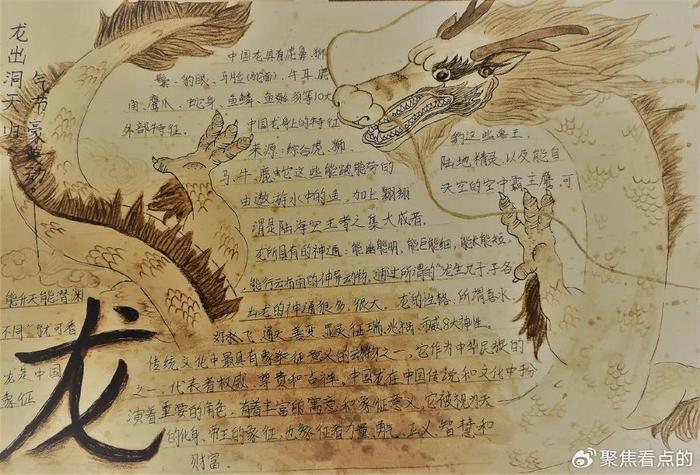 龙出洞天归
气节豪英
中国龙具有虎鼻、狮
鬃、豹眼、马脸(蛇面)、牛耳、鹿
角、鹰爪、蛇身、鱼鳞、鱼鳍、须等10大
外部特征。
中国龙身上的特征
来源:综合虎、狮、
豹这些兽王,
马、牛、鹿、蛇这些能跑能劳的
陆地精灵,以及能自
由遨游水中的鱼,加上翱翔
天空的空中霸主鹰,可
谓是陆海空王者之集大成者。
龙所具有的神通:能幽能明,能巨能细,能长能短,
能升天能潜渊
能行云布雨的神异动物,通过所谓的"龙生九子,子各
不同"就可看
出龙的神通很多、很大。龙的性格:所谓喜水、
好飞、通天、善变、显灵、征瑞、兆祸、示威8大神性。
龙是中国
传统文化中最具有象征意义的动物之一,它作为中华民族的
象征
之一,代表着权威、尊贵和吉祥。中国龙在中国传统和文化中扮
演着重要的角色,有着丰富的寓意和象征意义,它被视为天
的化身、帝王的象征,也象征着力量、正义、智慧和
财富。
龙
聚焦看点的